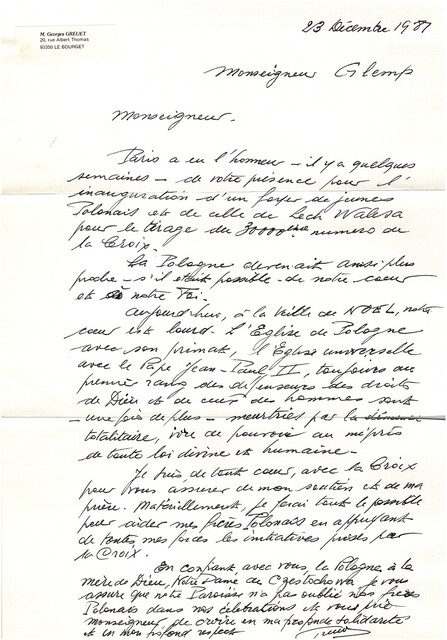 M. Georges GREUET
20, rue Albert Thomas
93350 LE BOURGET
23 Décembre 1981
Monseigneur Glemp
Monseigneur.
Paris a eu l'honneur - il y a quelques
semaines - de votre présence pour l'
inauguration d'un foyer de jeunes
Polonais et de celle de Lech Walesa
pour le tirage du 30000ème numéro de
la Croix.
La Pologne devenait ainsi plus
proche - s'il était possible - de notre coeur
et de notre Foi.
Aujourd'hui, à la veille de NOEL, notre
coeur est lourd. L'Eglise de Pologne
avec son primat, l'Eglise universelle
avec le Pape Jean-Paul II, toujours au
premier rang des défenseurs des droits
de Dieu et de ceux des hommes sont
- une fois de plus - meurtries par la
totalitaire, ivre de pouvoir au mépris
de toute loi divine et humaine -
Je suis de tout coeur, avec la Croix
pour vous assurer de mon soutien et de ma
prière. Matériellement, je ferai tout le possible
pour aider mes frères Polonais en appuyant
de toutes mes forces les initiatives prises par
la Croix.
En confiant, avec vous, la Pologne à la
mère de Dieu, Notre Dame de Czestochowa je vous
assure que notre Paroisse n'a pas oublié nos frères
Polonais dans nos célébrations et vous prie
monseigneur, de croire en ma profonde solidarité
et en mon profond respect